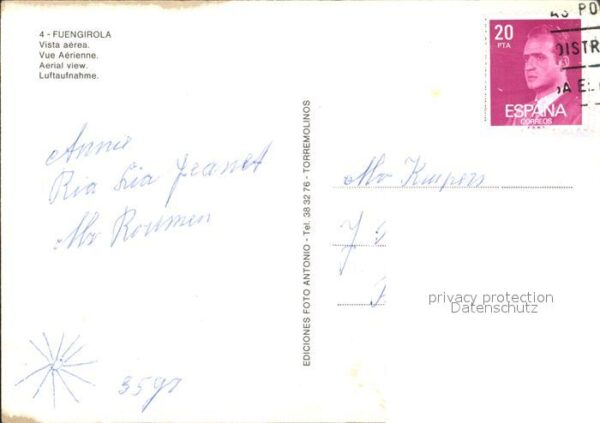 4 - FUENGIROLA
Vista aérea.
Vue Aérienne.
Aerial view.
Luftaufnahme.
Annie
Ria Lia Jeanet
Mv Roumen
EDICIONES FOTO ANTONIO - Tel. 38 32 76 - TORREMOLINOS
20
PTA
ESPAÑA
CORREOS
POS
DISTR
A EL
Mv Kuipers
J
privacy protection
Datenschutz